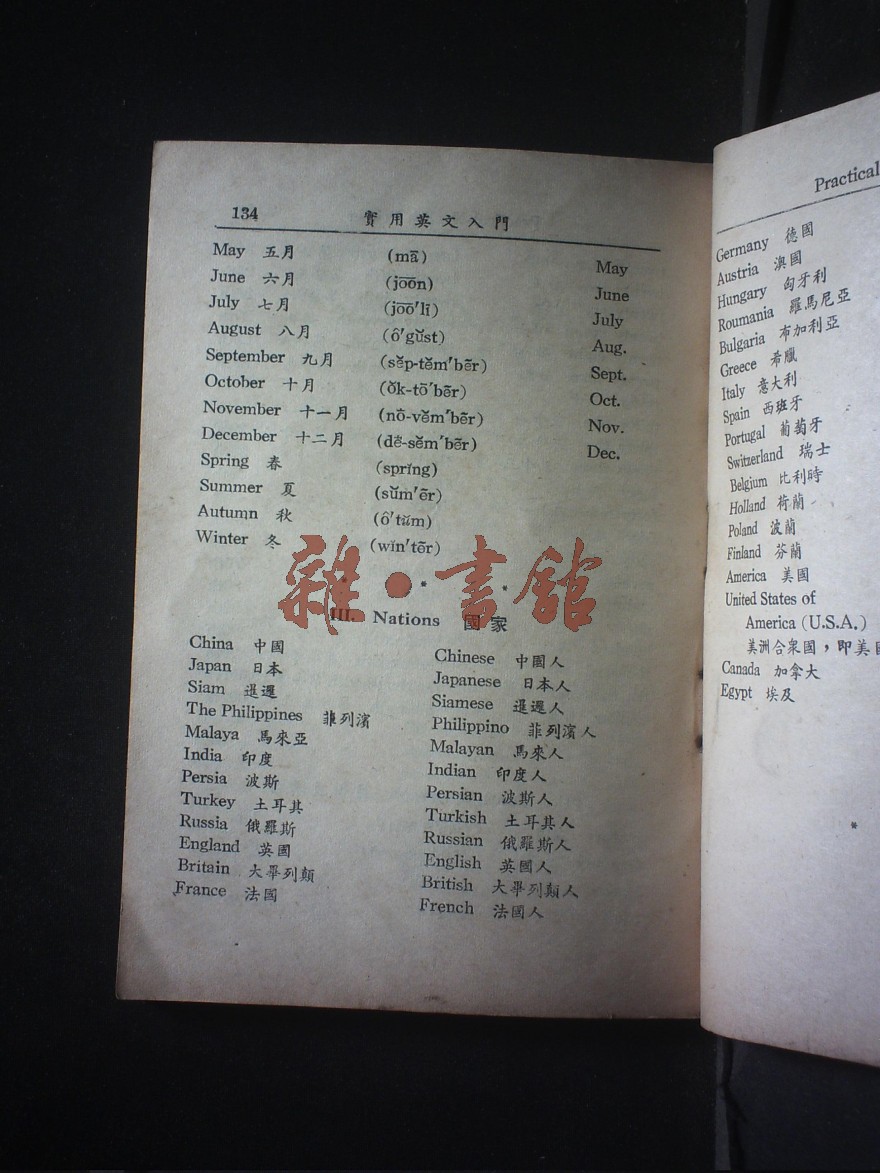 134 實用英文入門
May 五月 (mā) May
June 六月 (jo͞on) June
July 七月 (jo͞o′lī) July
August 八月 (ô′gŭst) Aug.
September 九月 (sĕp-tĕm′bẽr) Sept.
October 十月 (ŏk-tō′bẽr) Oct.
November 十一月 (nō-vĕm′bẽr) Nov.
December 十二月 (dē-sĕm′bẽr) Dec.
Spring 春 (sprĭng)
Summer 夏 (sŭm′ẽr)
Autumn 秋 (ô′tŭm)
Winter 冬 (wĭn′tẽr)
雜·書館
* * *
III. Nations 國家
China 中國 Chinese 中國人
Japan 日本 Japanese 日本人
Siam 暹邏 Siamese 暹邏人
The Philippines 菲列濱 Philippino 菲列濱人
Malaya 馬來亞 Malayan 馬來人
India 印度 Indian 印度人
Persia 波斯 Persian 波斯人
Turkey 土耳其 Turkish 土耳其人
Russia 俄羅斯 Russian 俄羅斯人
England 英國 English 英國人
Britain 大舉列顛 British 大舉列顛人
France 法國 French 法國人
Practical
Germany 德國
Austria 澳國
Hungary 匈牙利
Roumania 羅馬尼亞
Bulgaria 布加利亞
Greece 希臘
Italy 意大利
Spain 西班牙
Portugal 葡萄牙
Switzerland 瑞士
Belgium 比利時
Holland 荷蘭
Poland 波蘭
Finland 芬蘭
America 美國
United States of
America (U.S.A.)
美洲合衆國，即美國
Canada 加拿大
Egypt 埃及
*